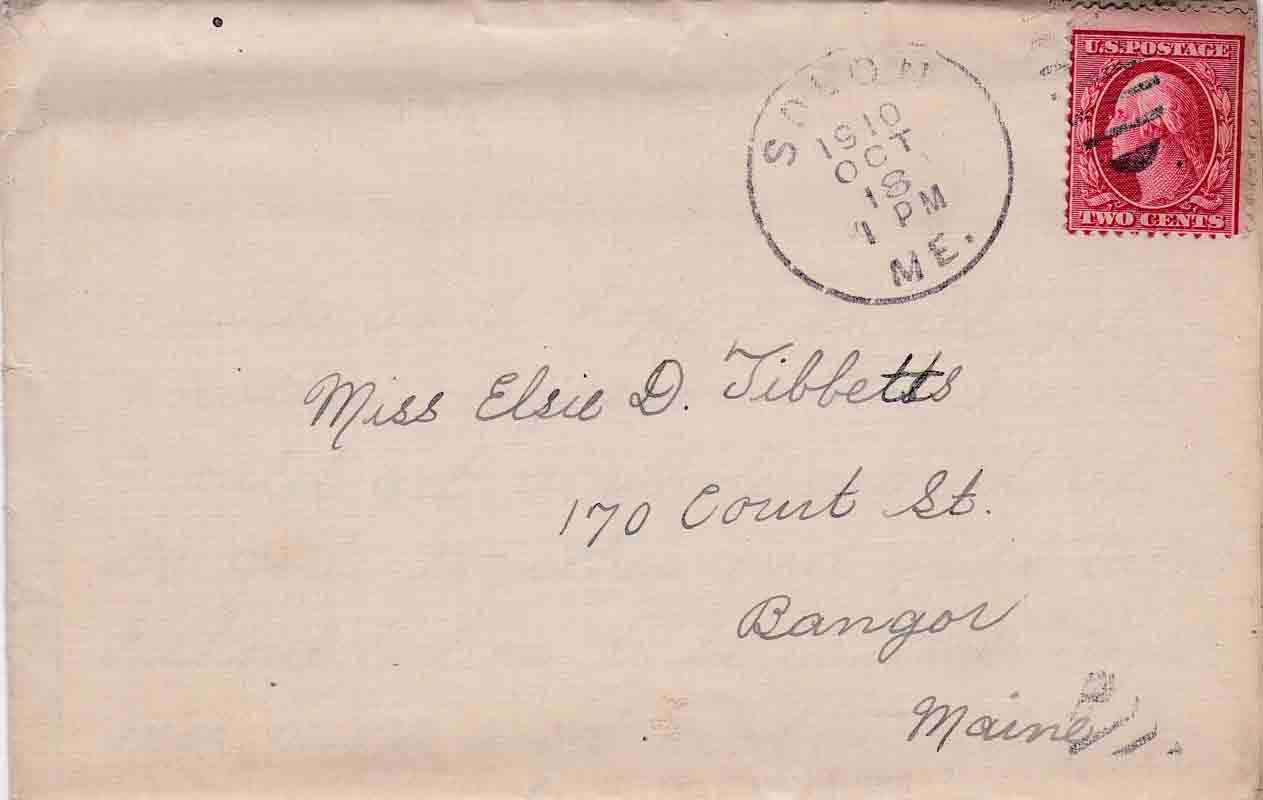 U.S. POSTAGE
TWO CENTS
SOLON
1910
OCT
18
1 PM
ME.
Miss Elsie D. Tibbetts
170 Court St.
Bangor
Maine